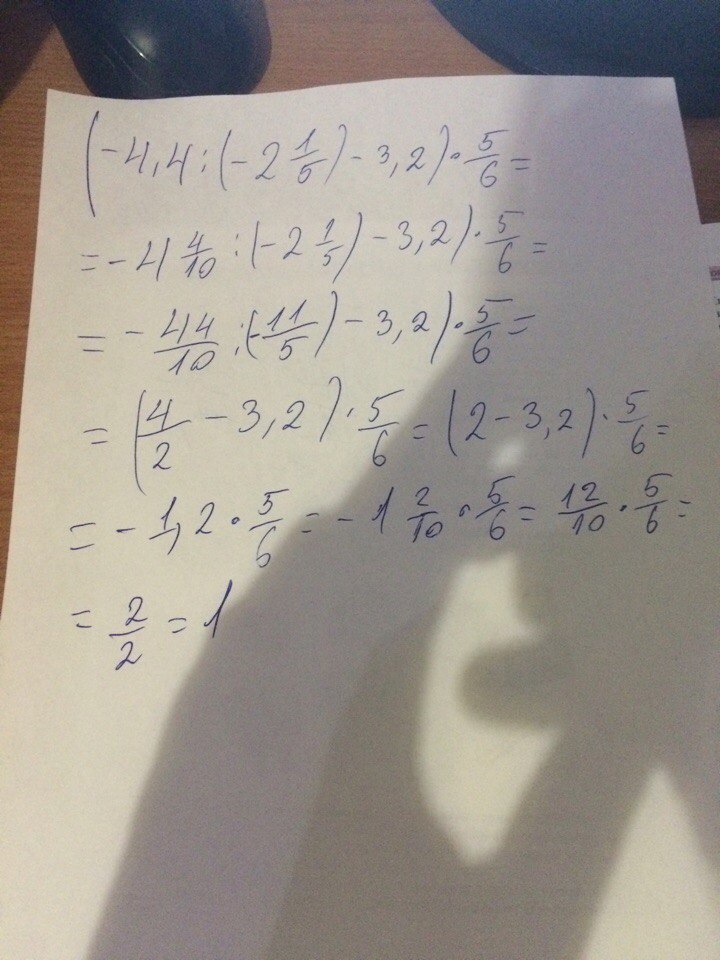 (-4,4:(-2 1/5)-3,2)·5/6=
=-4 4/10:(-2 1/5)-3,2)·5/6=
=-44/10:(-11/5)-3,2)·5/6=
=(4/2-3,2)·5/6=(2-3,2)·5/6=
=-1,2·5/6=-1 2/10·5/6=12/10·5/6=
=2/2=1